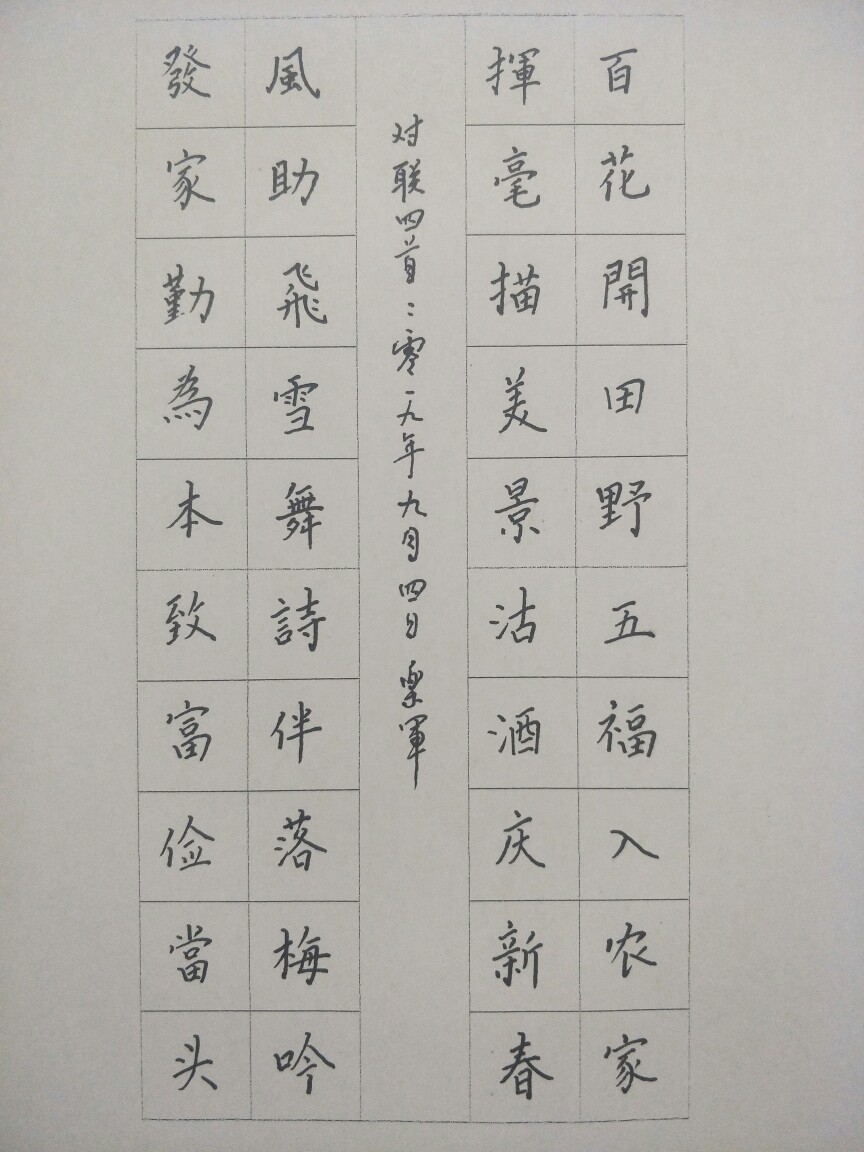 百花開田野五福入农家
揮毫描美景沽酒庆新春
对联四首二零一九年九月四日樂軍
風助飛雪舞詩伴落梅吟
發家勤為本致富俭當头